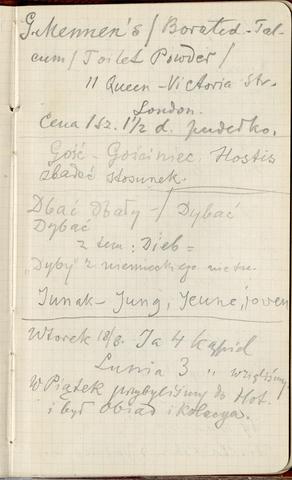 G. Mennen's / Borated-Tal-
cum / Toilet Powder /
11 Queen-Victoria Str.
London.
Cena 1 sz. 1½ d. pudełko.
Gość - Gościniec. Hostis
zbadać stosunek.
Dbać Dbały - / Dybać
Dybać
z tem: Dieb =
"Dyby" z niemieckiego
Junak - Jung, Jeune, joven
Wtorek 18/8. Ja 4 kąpiel
Lunia 3 " wzięliśmy
W Piątek przybyliśmy do Hot.
i był obiad i kolacya.